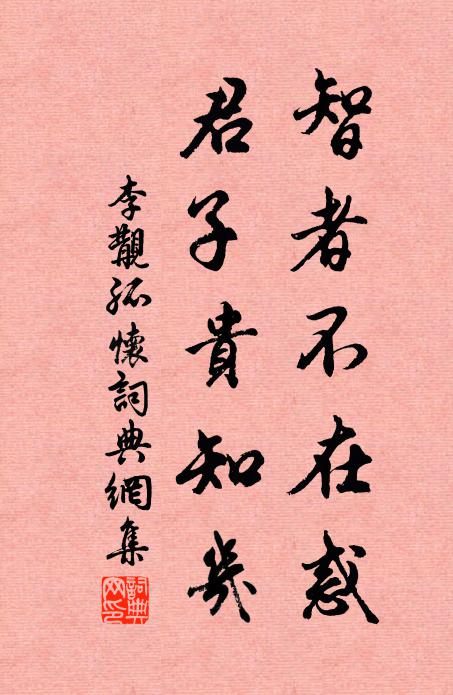 智者不在惑
君子貴知幾
李覯孤懷詞典網集
詞典网印